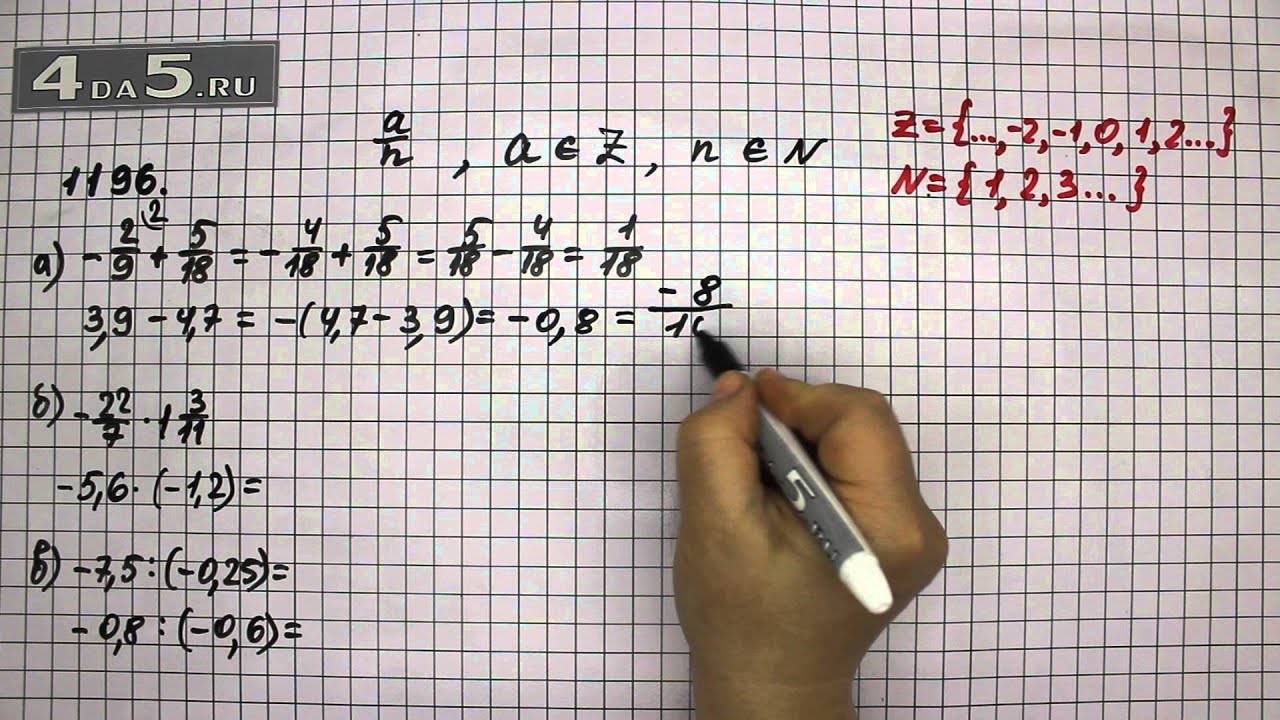 4ДА5.RU
a/n , a ∈ Z , n ∈ N
Z = {..., -2, -1, 0, 1, 2...}
N = {1, 2, 3...}
1196.
а) - 2/9 (2 + 5/18 = - 4/18 + 5/18 = 5/18 - 4/18 = 1/18
3,9 - 4,7 = -(4,7 - 3,9) = -0,8 = -8/10
б) - 22/7 · 1 3/11
-5,6 · (-1,2) =
в) -7,5 : (-0,25) =
-0,8 : (-0,6) =
5